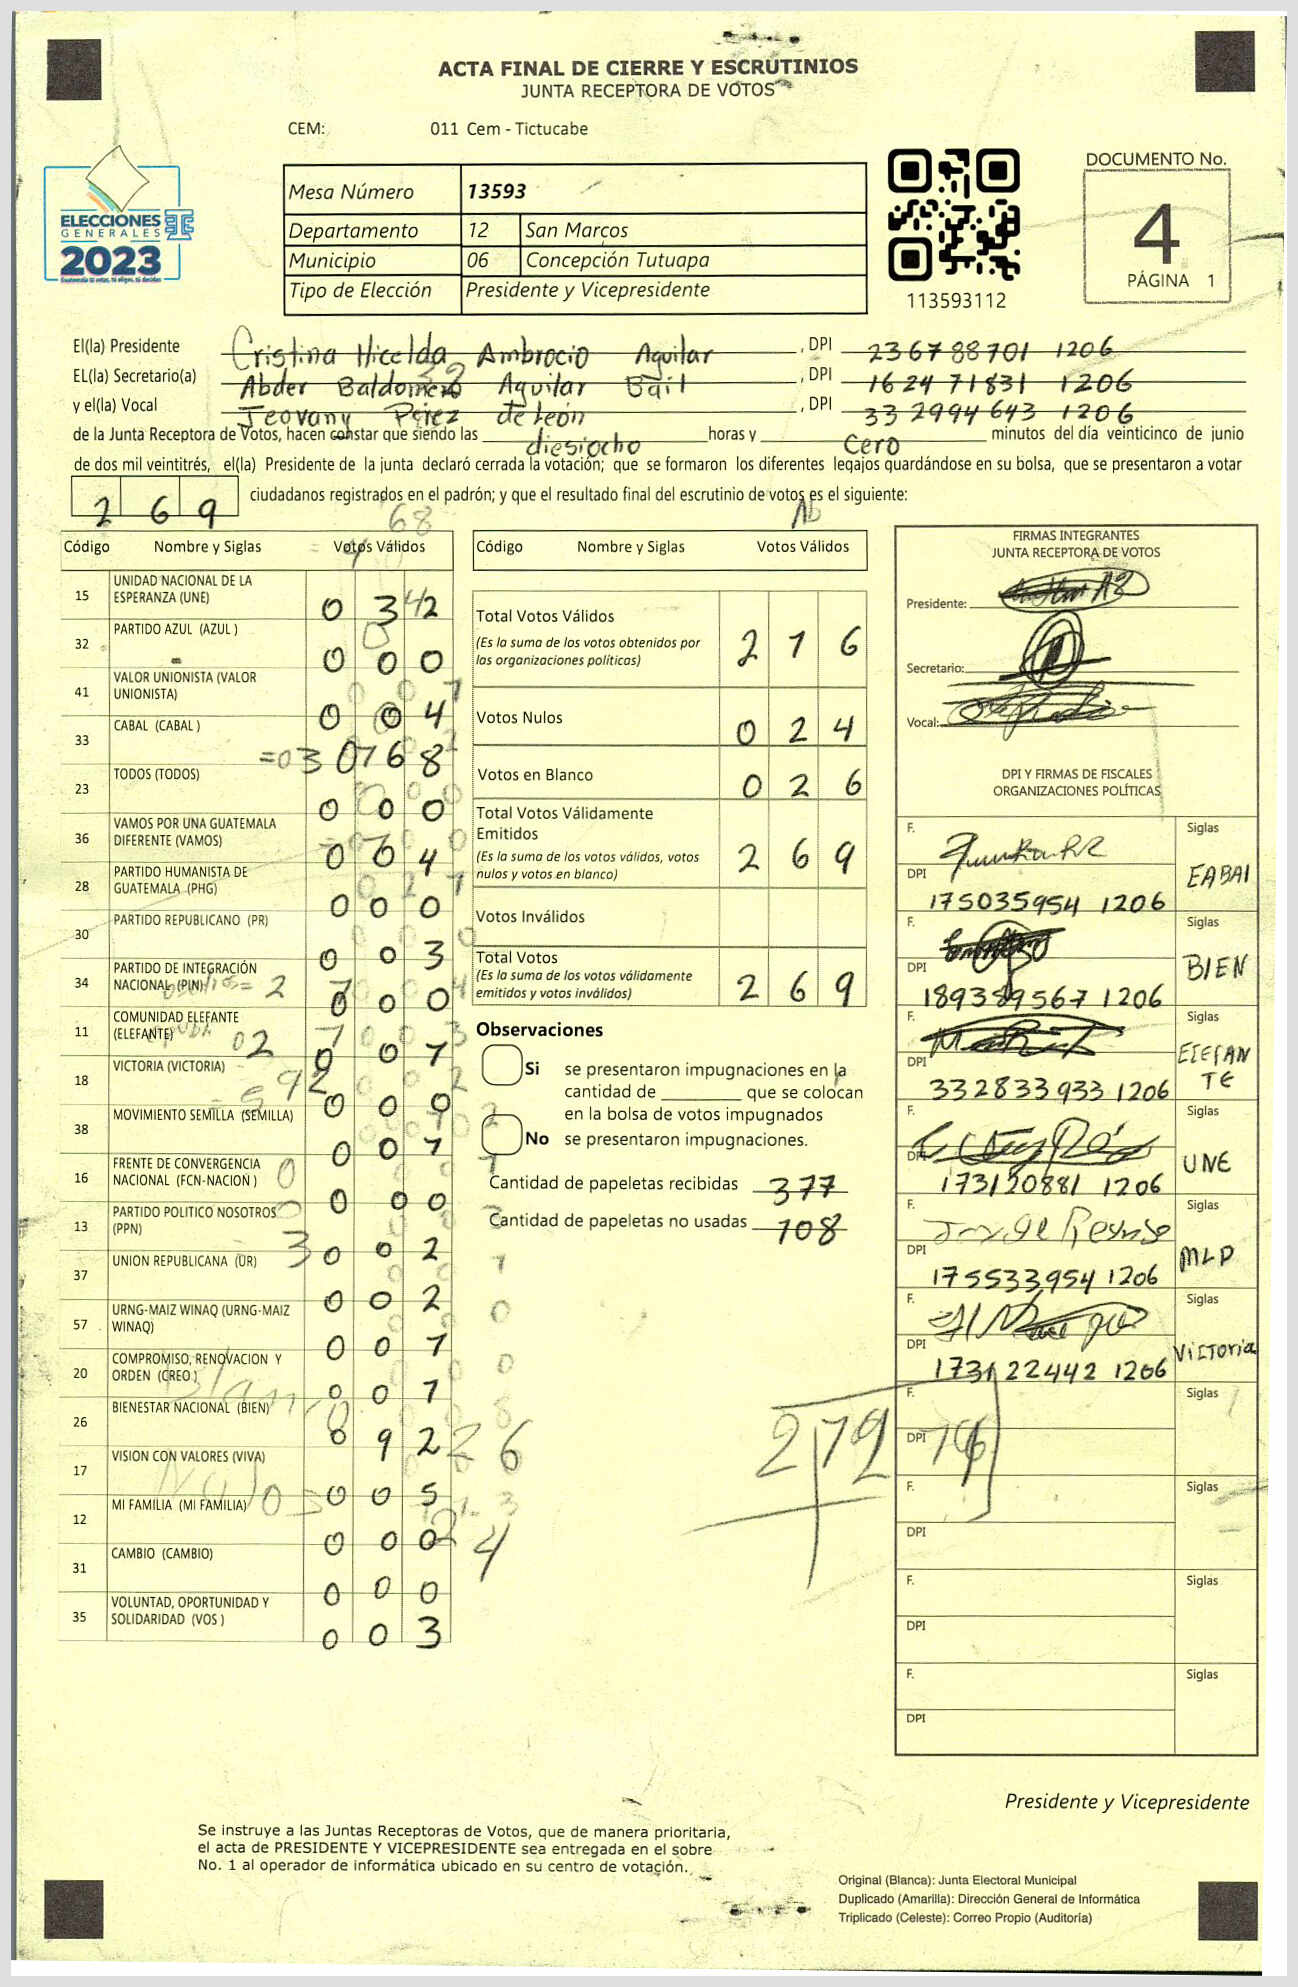 ACTA FINAL DE CIERRE Y ESCRUTINIOS
JUNTA RECEPTORA DE VOTOS
CEM: 011 Cem - Tictucabe
ELECCIONES
GENERALES
2023
Mesa Número 13593
Departamento 12 San Marcos
Municipio 06 Concepción Tutuapa
Tipo de Elección Presidente y Vicepresidente
113593112
DOCUMENTO No.
4
PÁGINA 1
El(la) Presidente Cristina Hicelda Ambrocio Aguilar , DPI 236788701 1206
EL(la) Secretario(a) Abder Baldomero Aguilar Bail , DPI 162471831 1206
y el(la) Vocal Jeovany Pérez de león , DPI 332994643 1206
de la Junta Receptora de Votos, hacen constar que siendo las diesiocho horas y Cero minutos del día veinticinco de junio
de dos mil veintitrés, el(la) Presidente de la junta declaró cerrada la votación; que se formaron los diferentes legajos guardándose en su bolsa, que se presentaron a votar
269 ciudadanos registrados en el padrón; y que el resultado final del escrutinio de votos es el siguiente:
68
Código Nombre y Siglas Votos Válidos
15 UNIDAD NACIONAL DE LA ESPERANZA (UNE) 0 3 2
32 PARTIDO AZUL (AZUL ) 0 0 0
41 VALOR UNIONISTA (VALOR UNIONISTA) 0 0 4
33 CABAL (CABAL ) 0 6 8
23 TODOS (TODOS) 0 0 0
36 VAMOS POR UNA GUATEMALA DIFERENTE (VAMOS) 0 0 4
28 PARTIDO HUMANISTA DE GUATEMALA (PHG) 0 0 0
30 PARTIDO REPUBLICANO (PR) 0 0 3
34 PARTIDO DE INTEGRACIÓN NACIONAL (PIN) 0 0 0
11 COMUNIDAD ELEFANTE (ELEFANTE) 0 0 1
18 VICTORIA (VICTORIA) 0 0 0
38 MOVIMIENTO SEMILLA (SEMILLA) 0 0 1
16 FRENTE DE CONVERGENCIA NACIONAL (FCN-NACION ) 0 0 0
13 PARTIDO POLITICO NOSOTROS (PPN) 0 0 2
37 UNION REPUBLICANA (UR) 0 0 2
57 URNG-MAIZ WINAQ (URNG-MAIZ WINAQ) 0 0 1
20 COMPROMISO, RENOVACION Y ORDEN (CREO ) 0 0 1
26 BIENESTAR NACIONAL (BIEN) 0 9 2
17 VISION CON VALORES (VIVA) 0 0 5
12 MI FAMILIA (MI FAMILIA) 0 0 0
31 CAMBIO (CAMBIO) 0 0 0
35 VOLUNTAD, OPORTUNIDAD Y SOLIDARIDAD (VOS ) 0 0 3
Código Nombre y Siglas Votos Válidos
Total Votos Válidos 2 1 6
(Es la suma de los votos obtenidos por
las organizaciones políticas)
Votos Nulos 0 2 4
Votos en Blanco 0 2 6
Total Votos Válidamente
Emitidos 2 6 9
(Es la suma de los votos válidos, votos
nulos y votos en blanco)
Votos Inválidos
Total Votos 2 6 9
(Es la suma de los votos válidamente
emitidos y votos inválidos)
Observaciones
Si se presentaron impugnaciones en la
cantidad de ________ que se colocan
en la bolsa de votos impugnados
No se presentaron impugnaciones.
Cantidad de papeletas recibidas 377
Cantidad de papeletas no usadas 108
FIRMAS INTEGRANTES
JUNTA RECEPTORA DE VOTOS
Presidente:
Secretario:
Vocal:
DPI Y FIRMAS DE FISCALES
ORGANIZACIONES POLÍTICAS
F. Siglas
DPI 175035954 1206 EABAI
F. Siglas
DPI 189389567 1206 BIEN
F. Siglas
DPI 332833933 1206 ElEFANTE
F. Siglas
DPI 173120881 1206 UNE
F. Siglas
DPI 175533954 1206 MLP
F. Siglas
DPI 173122442 1206 Victoria
F. Siglas
DPI
F. Siglas
DPI
F. Siglas
DPI
F. Siglas
DPI
Presidente y Vicepresidente
Se instruye a las Juntas Receptoras de Votos, que de manera prioritaria,
el acta de PRESIDENTE Y VICEPRESIDENTE sea entregada en el sobre
No. 1 al operador de informática ubicado en su centro de votación.
Original (Blanca): Junta Electoral Municipal
Duplicado (Amarilla): Dirección General de Informática
Triplicado (Celeste): Correo Propio (Auditoría)